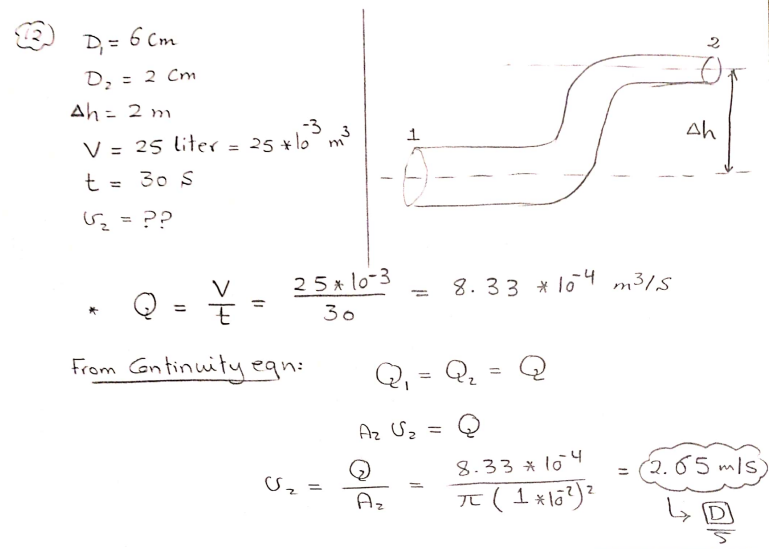 12
D₁ = 6 cm
D₂ = 2 cm
Δh = 2 m
V = 25 liter = 25 * 10⁻³ m³
t = 30 s
v₂ = ??
1
2
Δh
* Q = V/t = 25 * 10⁻³/30 = 8.33 * 10⁻⁴ m³/s
From Continuity eqn: Q₁ = Q₂ = Q
A₂ v₂ = Q
v₂ = Q/A₂ = 8.33 * 10⁻⁴/π (1 * 10⁻²)² = 2.65 m/s
↳ D